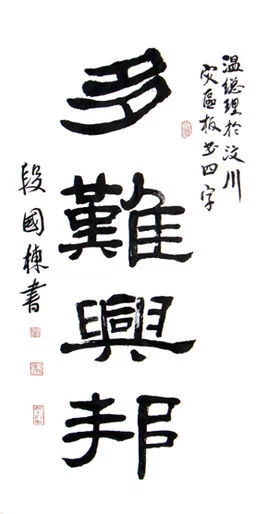 温总理於汶川
灾區板书四字
多難興邦
段國棟書